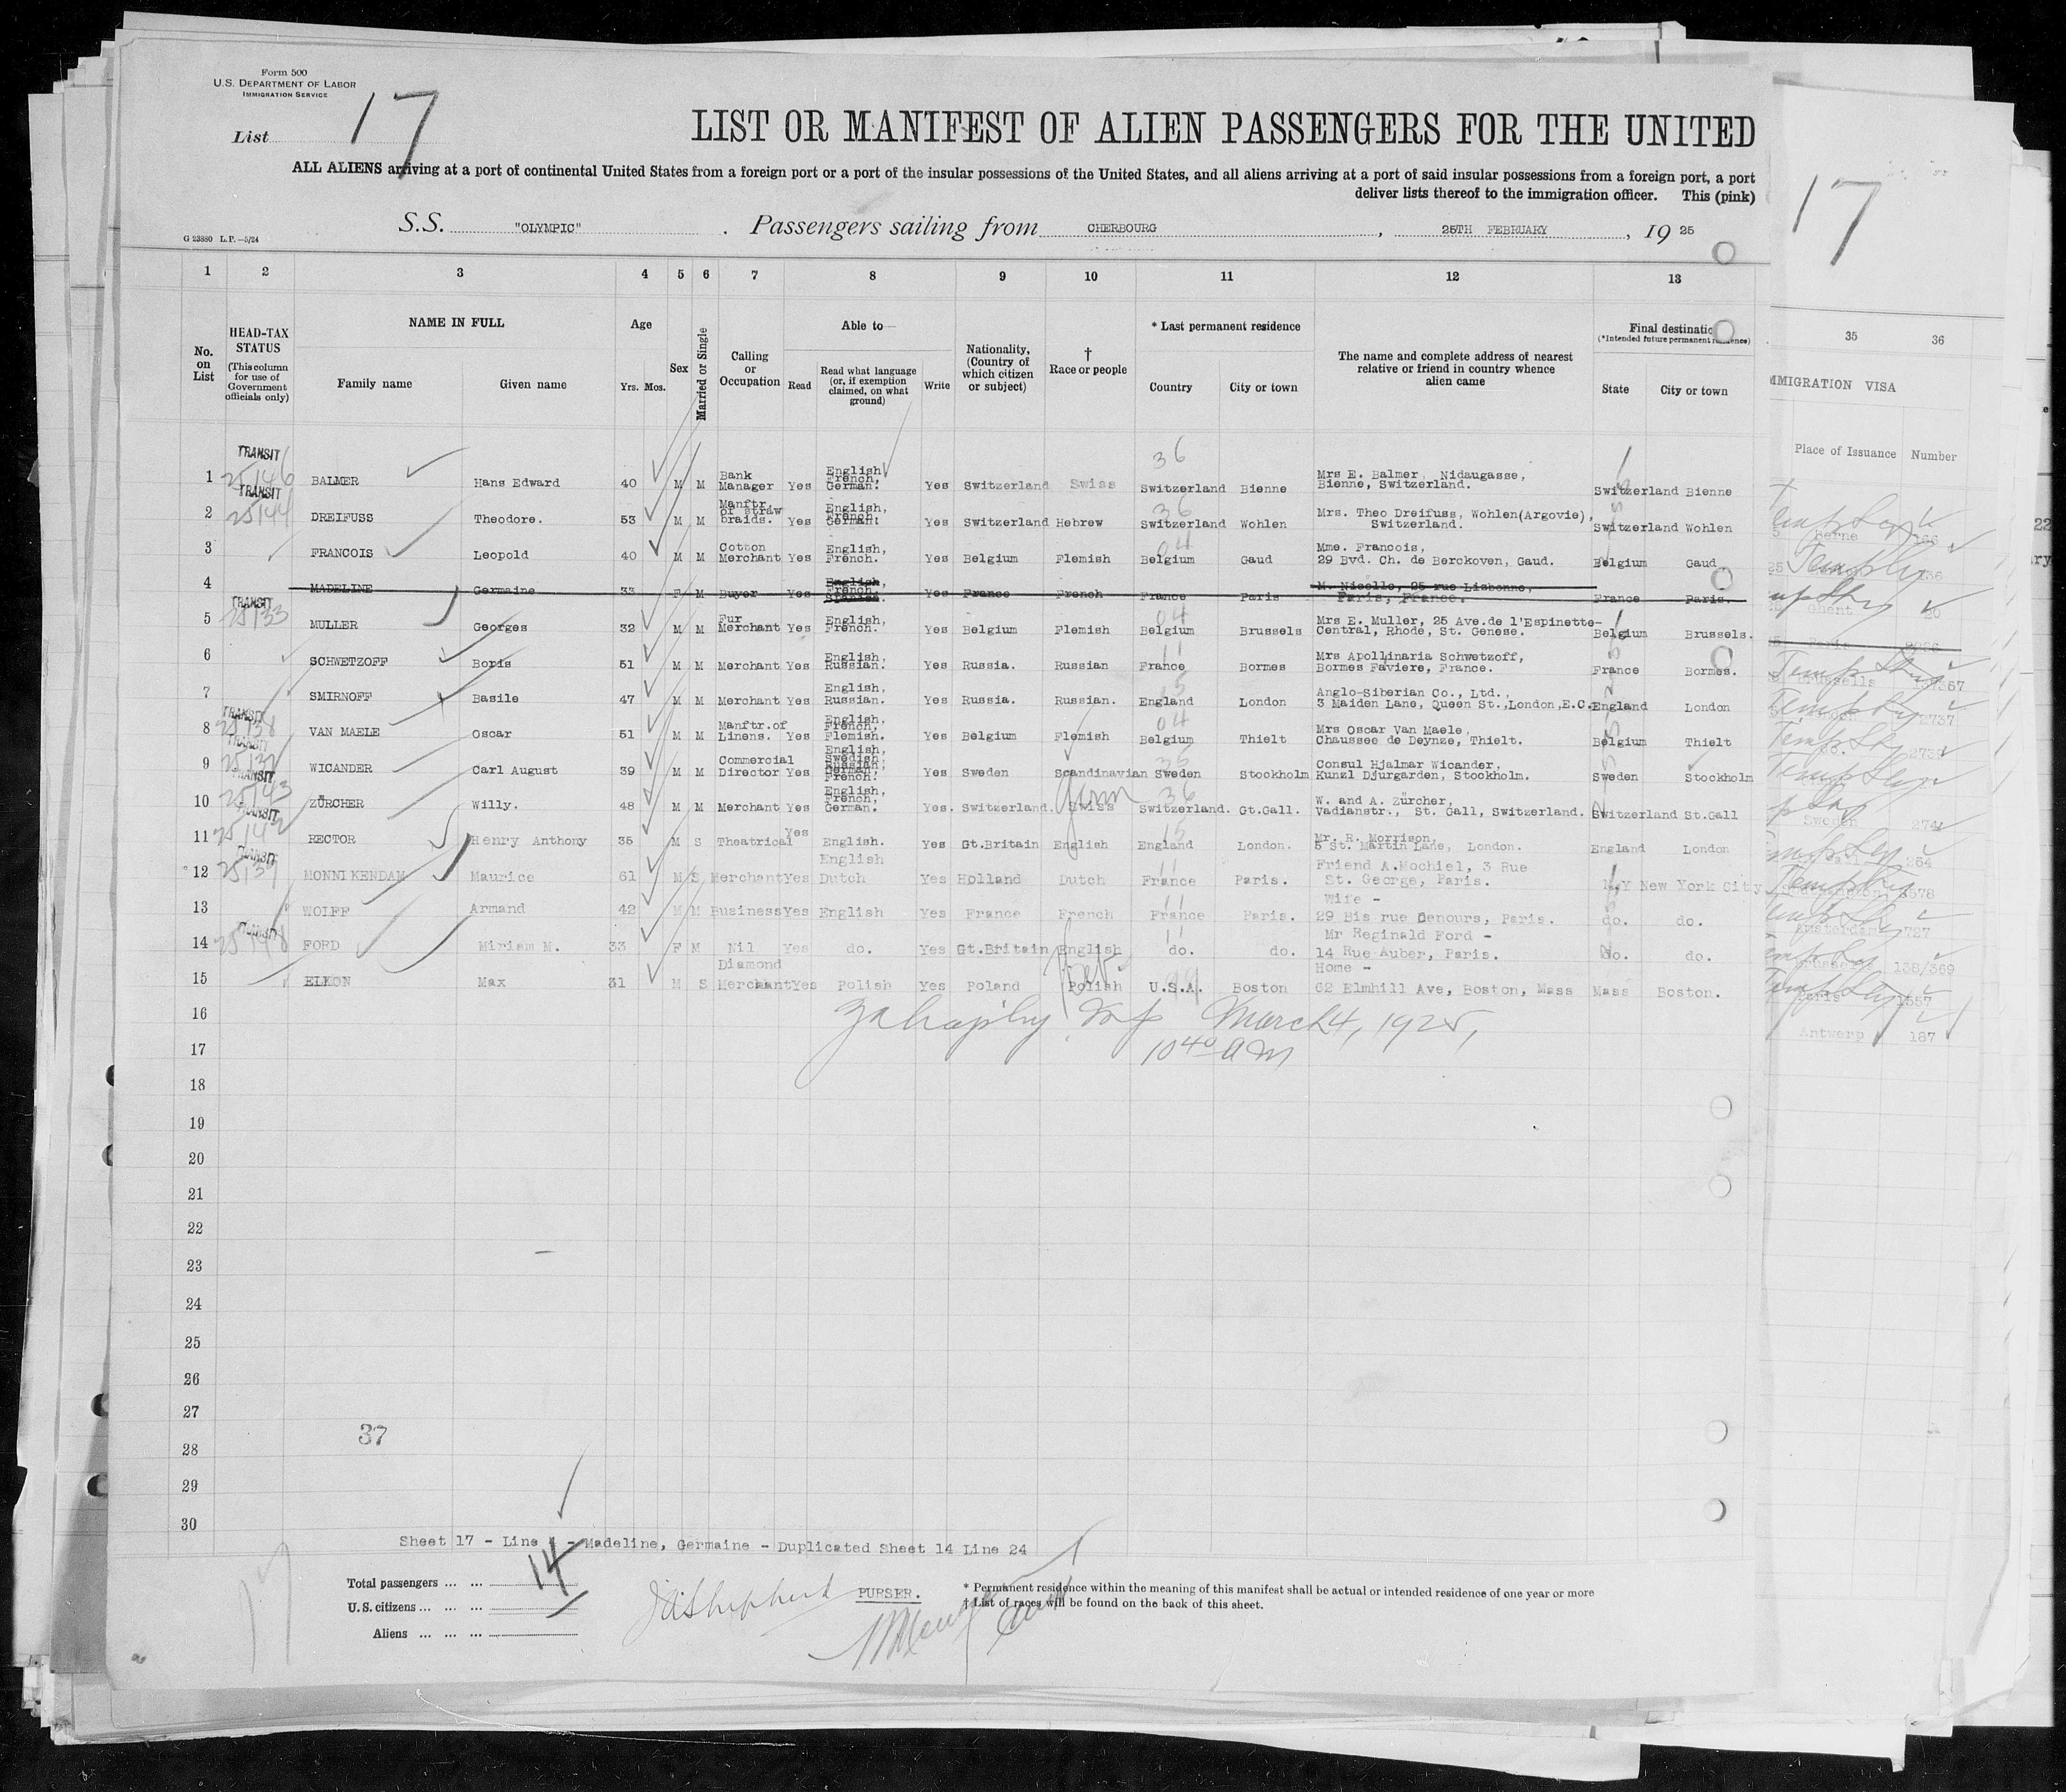 Form 500
U.S. DEPARTMENT OF LABOR
IMMIGRATION SERVICE
List 17
LIST OR MANIFEST OF ALIEN PASSENGERS FOR THE UNITED
ALL ALIENS arriving at a port of continental United States from a foreign port or a port of the insular possessions of the United States, and all aliens arriving at a port of said insular possessions from a foreign port, a port
deliver lists thereof to the immigration officer. This (pink)
S.S. "OLYMPIC" . Passengers sailing from CHERBOURG , 25TH FEBRUARY , 19 25
G 23880 L.P.—5/24
1 2 3 4 5 6 7 8 9 10 11 12 13
No. on List
HEAD-TAX STATUS
(This column for use of Government officials only)
NAME IN FULL
Family name Given name
Age
Yrs. Mos.
Sex
Married or Single
Calling or Occupation
Able to
Read
Read what language (or, if exemption claimed, on what ground)
Write
Nationality, (Country of which citizen or subject)
† Race or people
* Last permanent residence
Country City or town
The name and complete address of nearest relative or friend in country whence alien came
Final destination
(*Intended future permanent residence)
State City or town
1 TRANSIT 25146 BALMER Hans Edward 40 M M Bank Manager Yes English, French, German. Yes Switzerland Swiss 36 Switzerland Bienne Mrs E. Balmer, Nidaugasse, Bienne, Switzerland. Switzerland Bienne
2 TRANSIT 25144 DREIFUSS Theodore. 53 M M Manftr. of straw braids. Yes English, French, German. Yes Switzerland Hebrew 36 Switzerland Wohlen Mrs. Theo Dreifuss, Wohlen(Argovie), Switzerland. Switzerland Wohlen
3 FRANCOIS Leopold 40 M M Cotton Merchant Yes English, French. Yes Belgium Flemish 04 Belgium Gaud Mme. Francois, 29 Bvd. Ch. de Berckoven, Gaud. Belgium Gaud
4 MADELINE Germaine 33 F M Buyer Yes English, French, Spanish. Yes France French France Paris M. Nicolle, 25 rue Lisbonne, Paris, France. France Paris.
5 TRANSIT 25133 MULLER Georges 32 M M Fur Merchant Yes English, French. Yes Belgium Flemish 04 Belgium Brussels Mrs E. Muller, 25 Ave.de l'Espinette-Central, Rhode, St. Genese. Belgium Brussels.
6 SCHWETZOFF Boris 51 M M Merchant Yes English, Russian. Yes Russia. Russian 11 France Bormes Mrs Apollinaria Schwetzoff, Bormes Faviere, France. France Bormes.
7 SMIRNOFF Basile 47 M M Merchant Yes English, Russian. Yes Russia. Russian. 15 England London Anglo-Siberian Co., Ltd., 3 Maiden Lane, Queen St.,London,E.C. England London
8 TRANSIT 25138 VAN MAELE Oscar 51 M M Manftr.of Linens. Yes English, French, Flemish. Yes Belgium Flemish 04 Belgium Thielt Mrs Oscar Van Maele, Chaussee de Deynze, Thielt. Belgium Thielt
9 TRANSIT WICANDER Carl August 39 M M Commercial Director Yes English, Swedish, Russian, German, French. Yes Sweden Scandinavian Sweden Stockholm Consul Hjalmar Wicander, Kunzl Djurgarden, Stockholm. Sweden Stockholm
10 TRANSIT 25143 ZÜRCHER Willy. 48 M M Merchant Yes English, French, German. Yes. Switzerland. Swiss Germ 36 Switzerland. Gt.Gall. W. and A. Zürcher, Vadianstr., St. Gall, Switzerland. Switzerland St.Gall
11 TRANSIT 25142 RECTOR Henry Anthony 35 M S Theatrical Yes English. Yes Gt.Britain English 15 England London. Mr. R. Morrison, 5 St. Martin Lane, London. England London
12 TRANSIT MONNIKENDAM Maurice 61 M S Merchant Yes English Dutch Yes Holland Dutch 11 France Paris. Friend A.Mochiel, 3 Rue St. George, Paris. N.Y New York City
13 WOLFF Armand 42 M M Business Yes English Yes France French 11 France Paris. Wife - 29 Bis rue Denours, Paris. do. do.
14 TRANSIT 25148 FORD Miriam M. 33 F M Nil Yes do. Yes Gt.Britain English 11 do. do. Mr Reginald Ford - 14 Rue Auber, Paris. do. do.
15 ELKON Max 31 M S Diamond Merchant Yes Polish Yes Poland Polish Heb. 99 U.S.A. Boston Home - 62 Elmhill Ave, Boston, Mass Mass Boston.
16
March 4, 1925,
17
10 40 am
18
19
20
21
22
23
24
25
26
27
37
28
29
30
Sheet 17 - Line 4 - Madeline, Germaine - Duplicated Sheet 14 Line 24
Total passengers ... ... 14
U.S. citizens ... ... ...
Aliens ... ... ...
PURSER.
* Permanent residence within the meaning of this manifest shall be actual or intended residence of one year or more
† List of races will be found on the back of this sheet.
17
35 36
MMIGRATION VISA
Place of Issuance Number
Berne
Ghent
2737
Sweden
Amsterdam 727
138/369
Paris 1557
Antwerp 187